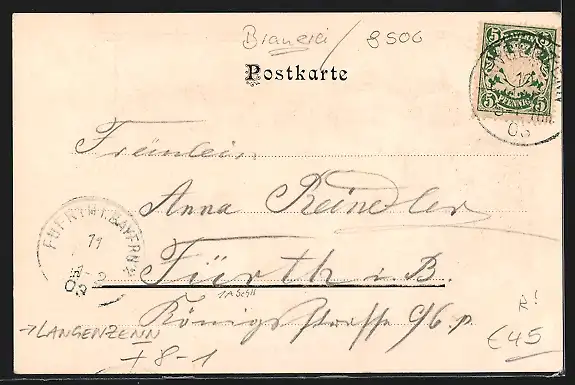 Brauerei / 8506
Postkarte
5 BAYERN 5
5 PFENNIG 5
12
03
Fräulein
Anna Reindler
FUERTH I. BAYERN
11
03
Fürth i. B.
Königsstrasse 96 p.
→ LANGENZENN
+8-1
R!
€45